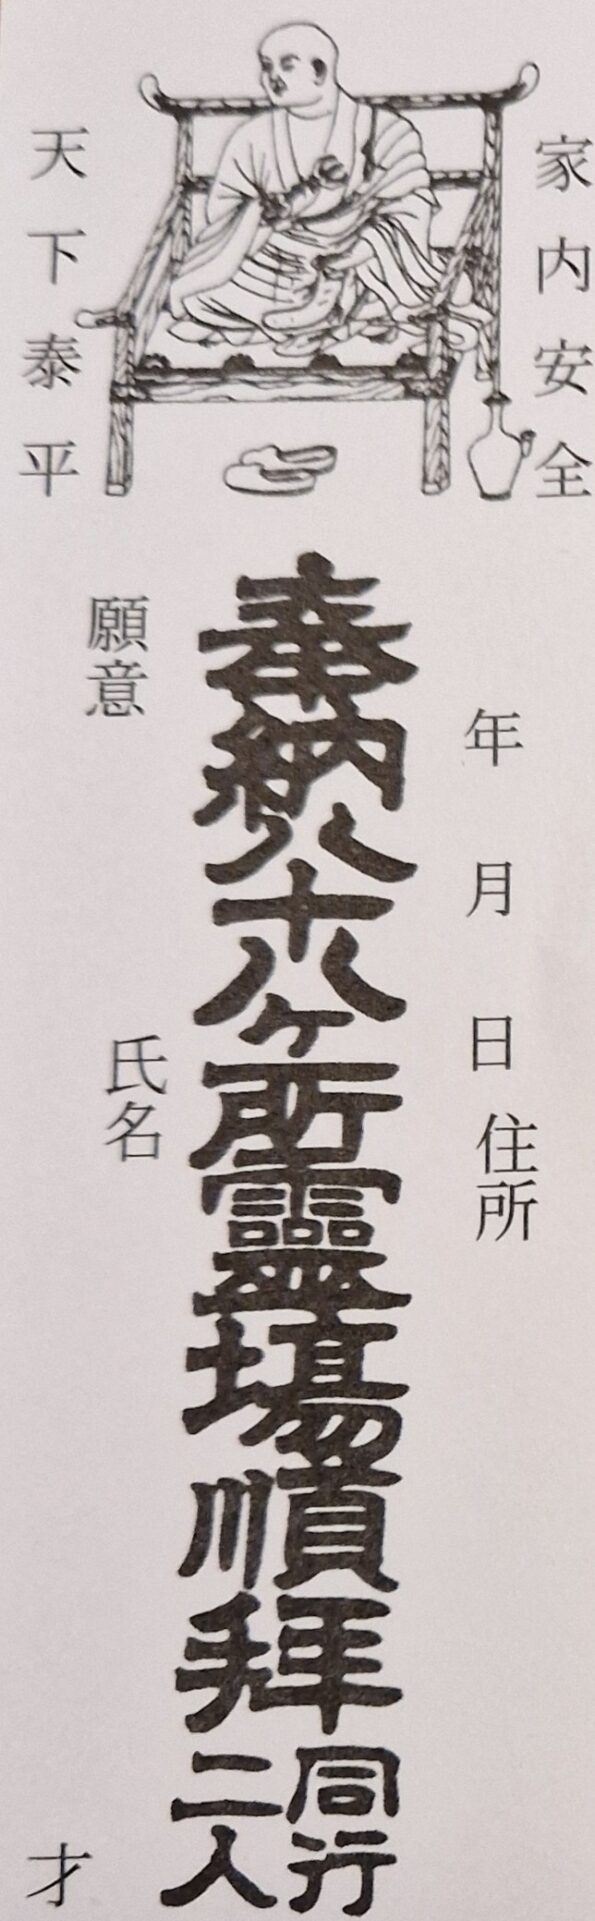 家内安全
年 月 日 住所
奉納八十八ヶ所霊場順拝
同行
二人
願意 氏名
天下泰平
才